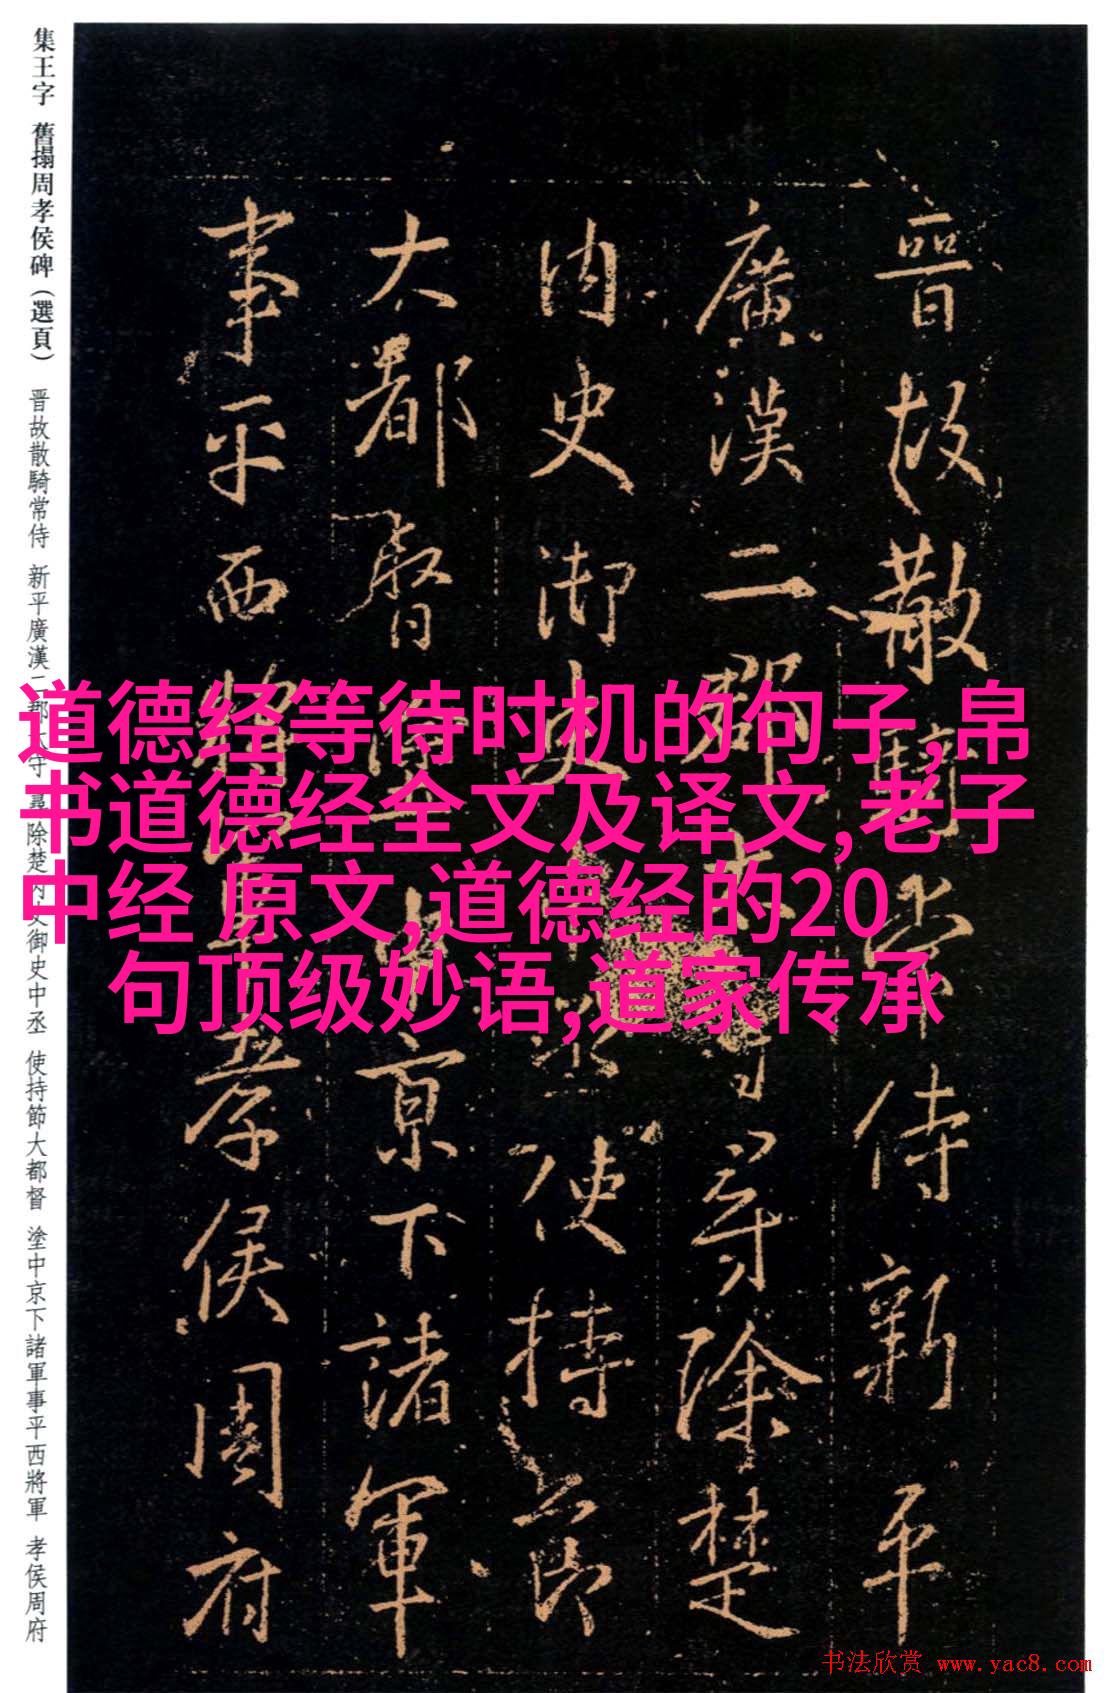 集王字 舊搨周孝侯碑（選頁） 晋故散騎常侍 新平廣漢二郡 守 尋除楚内史御史中丞 使持節大都督 塗中京下諸軍事平西將軍 孝侯周府
晉故散騎常侍新平
廣漢二郡 守尋除楚
内史御史中丞使持節
大都督塗中京下諸軍
事平西將軍孝侯周府
道德经等待时机的句子,帛
书道德经全文及译文,老子
中经 原文,道德经的20
句顶级妙语,道家传承
书法欣赏 www.yac8.com